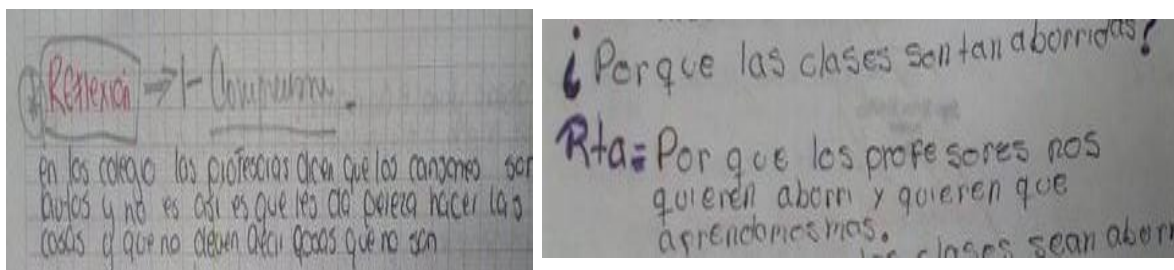 Reflexión → 1-
en los colegio las profesoras dicen que los cansones son
brutos y no es asi es que les da pereza hacer las
cosas y que no deven decir cosas que no son
¿Porque las clases son tan aborridas?
Rta= Por que los profesores nos
quieren aborrir y quieren que
aprendamos mas.
clases sean aborr